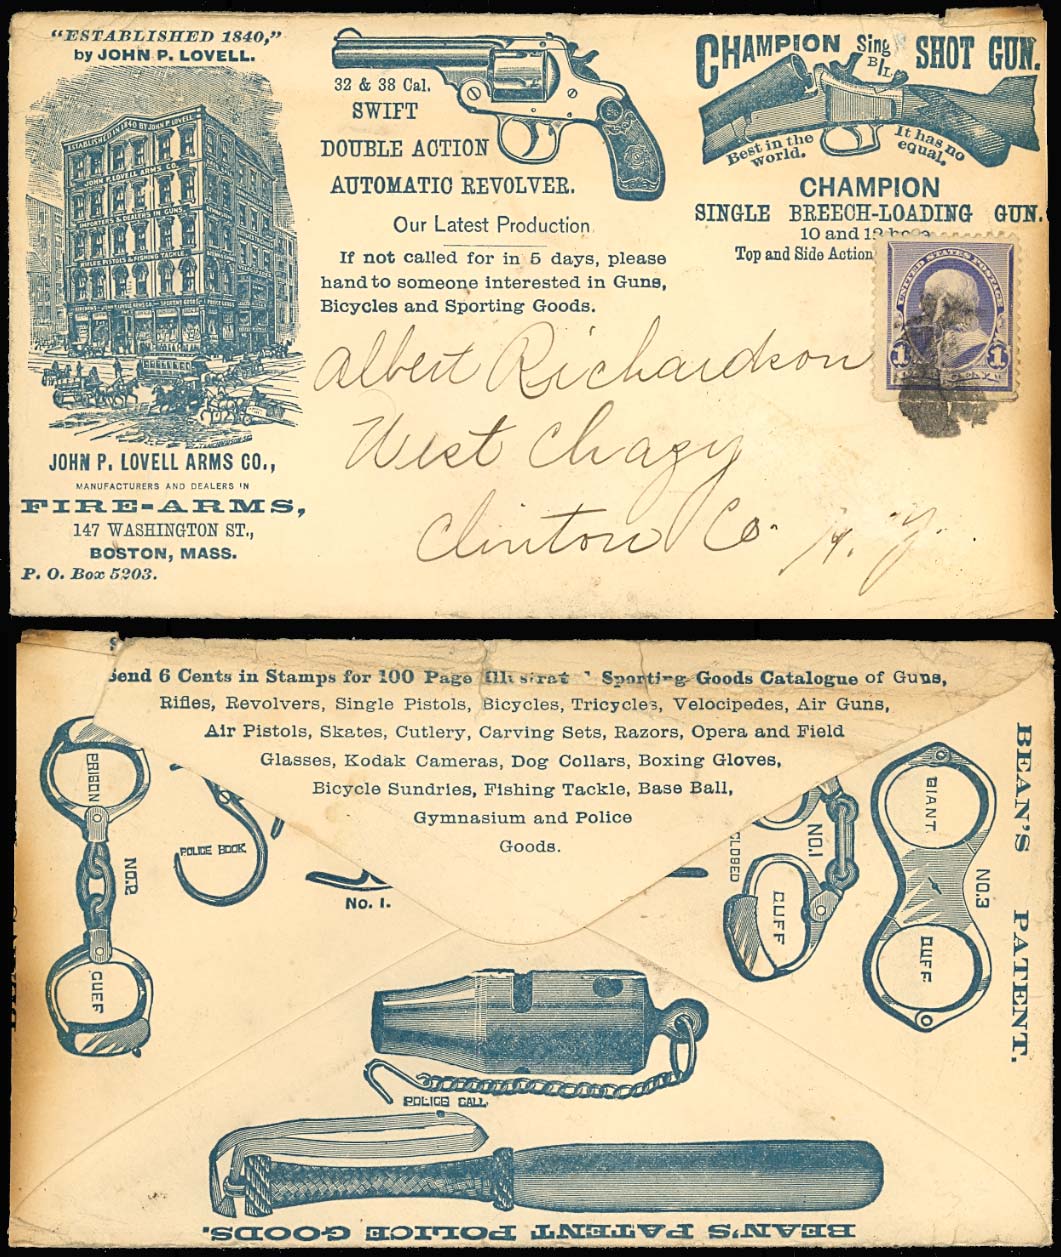 "ESTABLISHED 1840,"
by JOHN P. LOVELL.
ESTABLISHED IN 1840 BY JOHN P. LOVELL
JOHN P. LOVELL ARMS CO.
IMPORTERS & DEALERS IN GUNS
RIFLES PISTOLS & FISHING TACKLE
JOHN P. LOVELL ARMS CO.,
MANUFACTURERS AND DEALERS IN
FIRE-ARMS,
147 WASHINGTON ST.,
BOSTON, MASS.
P. O. Box 5203.
32 & 38 Cal.
SWIFT
DOUBLE ACTION
AUTOMATIC REVOLVER.
Our Latest Production
If not called for in 5 days, please
hand to someone interested in Guns,
Bicycles and Sporting Goods.
CHAMPION Sing B/L SHOT GUN.
Best in the
world.
It has no
equal.
CHAMPION
SINGLE BREECH-LOADING GUN.
10 and 12
Top and Side Action
UNITED STATES POSTAGE
1 1
Albert Richardson
West Chazy
Clinton Co. N.Y.
Send 6 Cents in Stamps for 100 Page Illustrat Sporting Goods Catalogue of Guns,
Rifles, Revolvers, Single Pistols, Bicycles, Tricycles, Velocipedes, Air Guns,
Air Pistols, Skates, Cutlery, Carving Sets, Razors, Opera and Field
Glasses, Kodak Cameras, Dog Collars, Boxing Gloves,
Bicycle Sundries, Fishing Tackle, Base Ball,
Gymnasium and Police
Goods.
PRISON
NO.2
CUFF
POLICE BOOK
No. 1.
CLOSED
NO.1
CUFF
GIANT
NO.3
CUFF
BEAN'S PATENT.
POLICE CALL
BEAN'S PATENT POLICE GOODS.